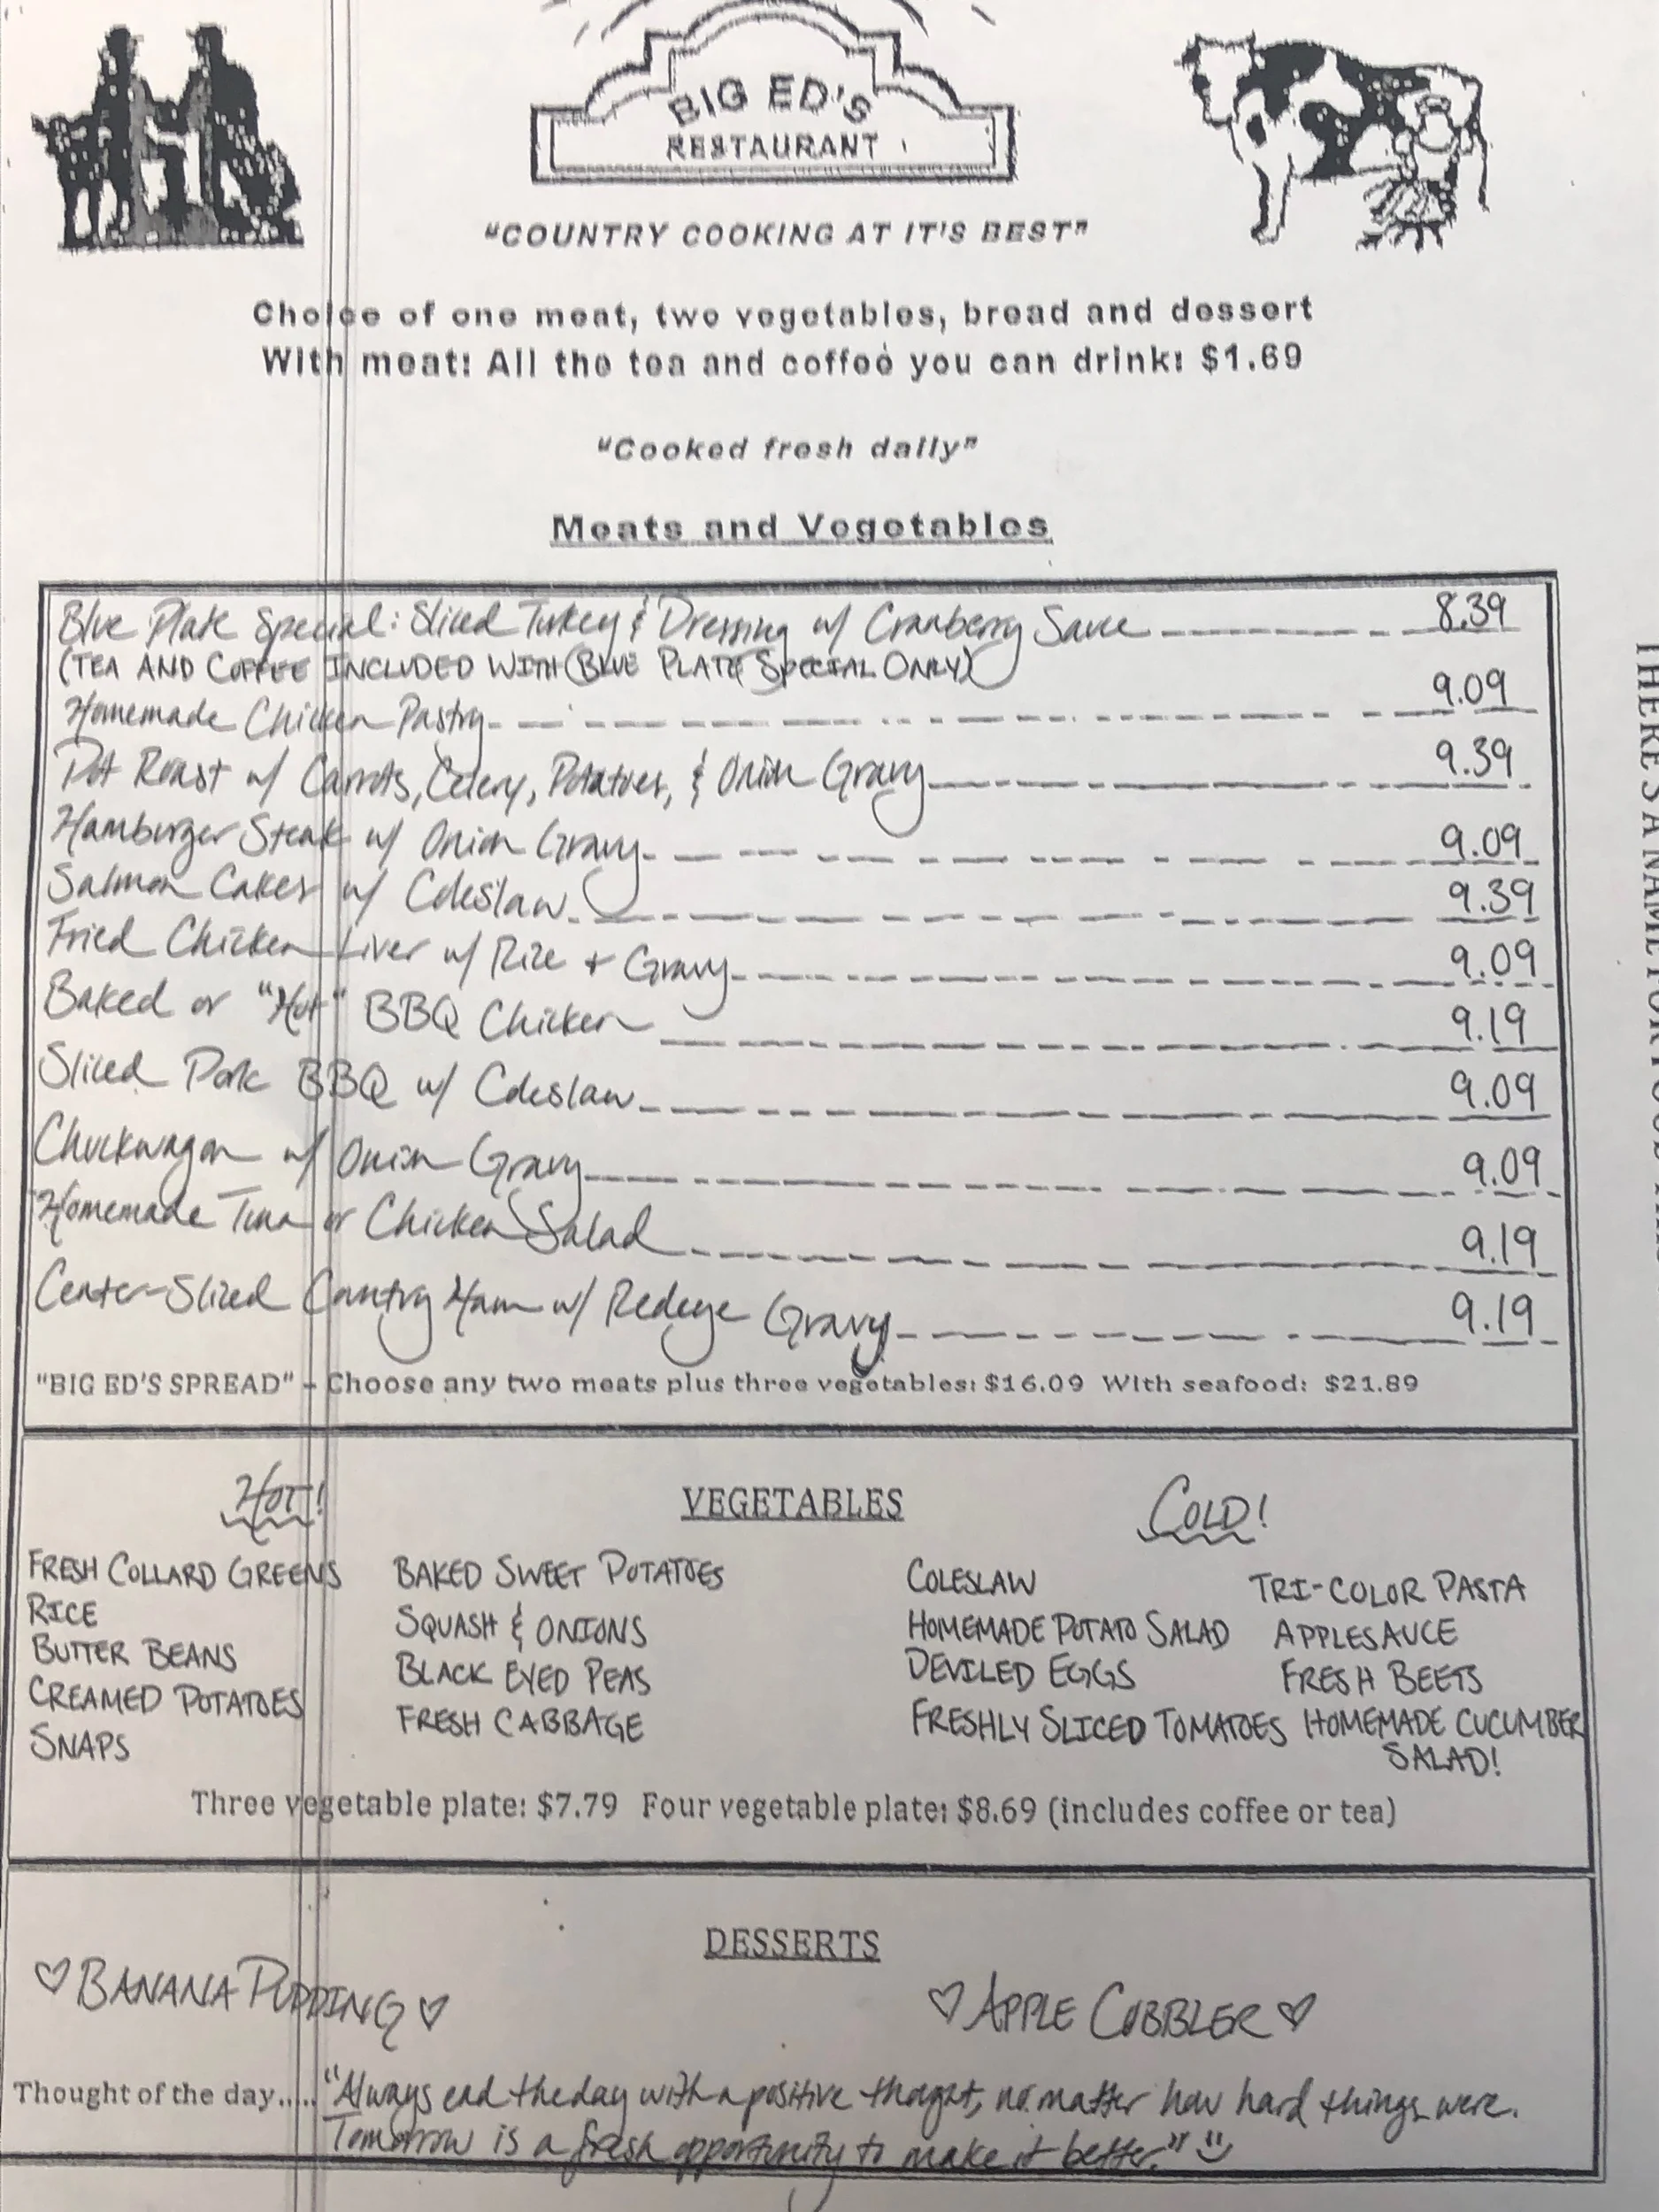 BIG ED'S
RESTAURANT
"COUNTRY COOKING AT IT'S BEST"
Choice of one meat, two vegetables, bread and dessert
With meat: All the tea and coffee you can drink: $1.69
"Cooked fresh daily"
Meats and Vegetables
Blue Plate Special: Sliced Turkey & Dressing w/ Cranberry Sauce 8.39
(TEA AND COFFEE INCLUDED WITH BLUE PLATE SPECIAL ONLY)
Homemade Chicken Pastry 9.09
Pot Roast w/ Carrots, Celery, Potatoes, & Onion Gravy 9.39
Hamburger Steak w/ Onion Gravy 9.09
Salmon Cakes w/ Coleslaw 9.39
Fried Chicken Liver w/ Rice + Gravy 9.09
Baked or "Hot" BBQ Chicken 9.19
Sliced Pork BBQ w/ Coleslaw 9.09
Chuckwagon w/ Onion Gravy 9.09
Homemade Tuna or Chicken Salad 9.19
Center-Sliced Country Ham w/ Redeye Gravy 9.19
"BIG ED'S SPREAD" - Choose any two meats plus three vegetables: $16.09 With seafood: $21.89
HOT! VEGETABLES COLD!
FRESH COLLARD GREENS BAKED SWEET POTATOES COLESLAW TRI-COLOR PASTA
RICE SQUASH & ONIONS HOMEMADE POTATO SALAD APPLESAUCE
BUTTER BEANS BLACK EYED PEAS DEVILED EGGS FRESH BEETS
CREAMED POTATOES FRESH CABBAGE FRESHLY SLICED TOMATOES HOMEMADE CUCUMBER
SNAPS SALAD!
Three vegetable plate: $7.79 Four vegetable plate: $8.69 (includes coffee or tea)
DESSERTS
♡ BANANA PUDDING ♡ ♡ APPLE COBBLER ♡
Thought of the day..... "Always end the day with a positive thought, no matter how hard things were.
Tomorrow is a fresh opportunity to make it better."
THERE'S A NAME FOR